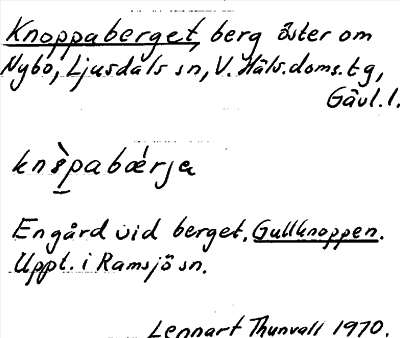 Knoppaberget, berg öster om
Nybo, Ljusdals sn, V. Häls. doms. tg,
Gävl. l.
knɞ̀pabǽrja
En gård vid berget. Gullknoppen.
Uppt. i Ramsjö sn.
Lennart Thunvall 1970.